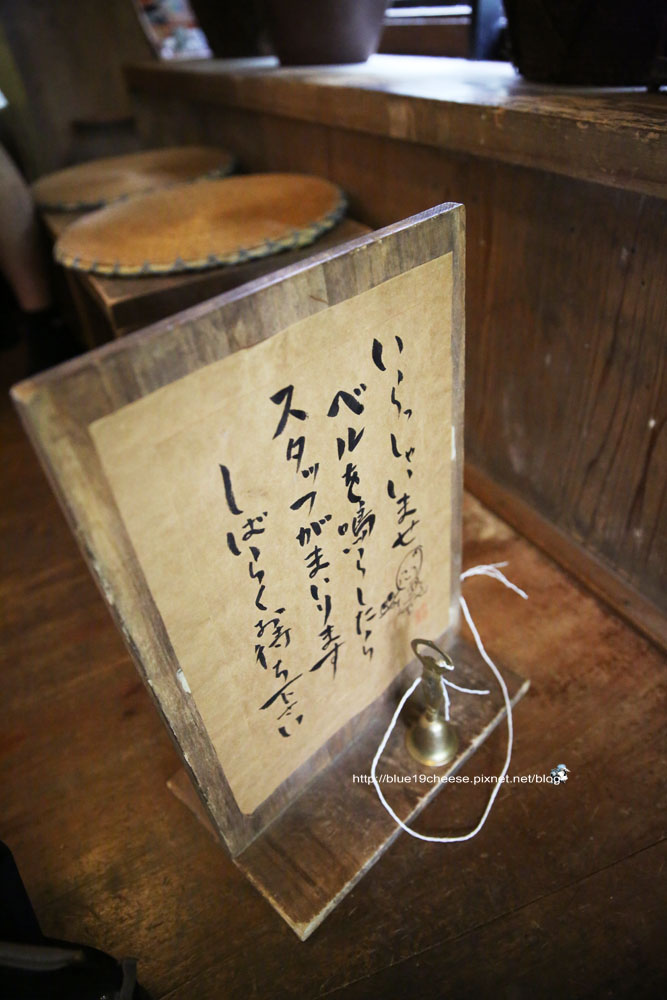 いらっしゃいませ
ベルを鳴らしたら
スタッフがまいります
しばらくお待ち下さい
http://blue19cheese.pixnet.net/blog